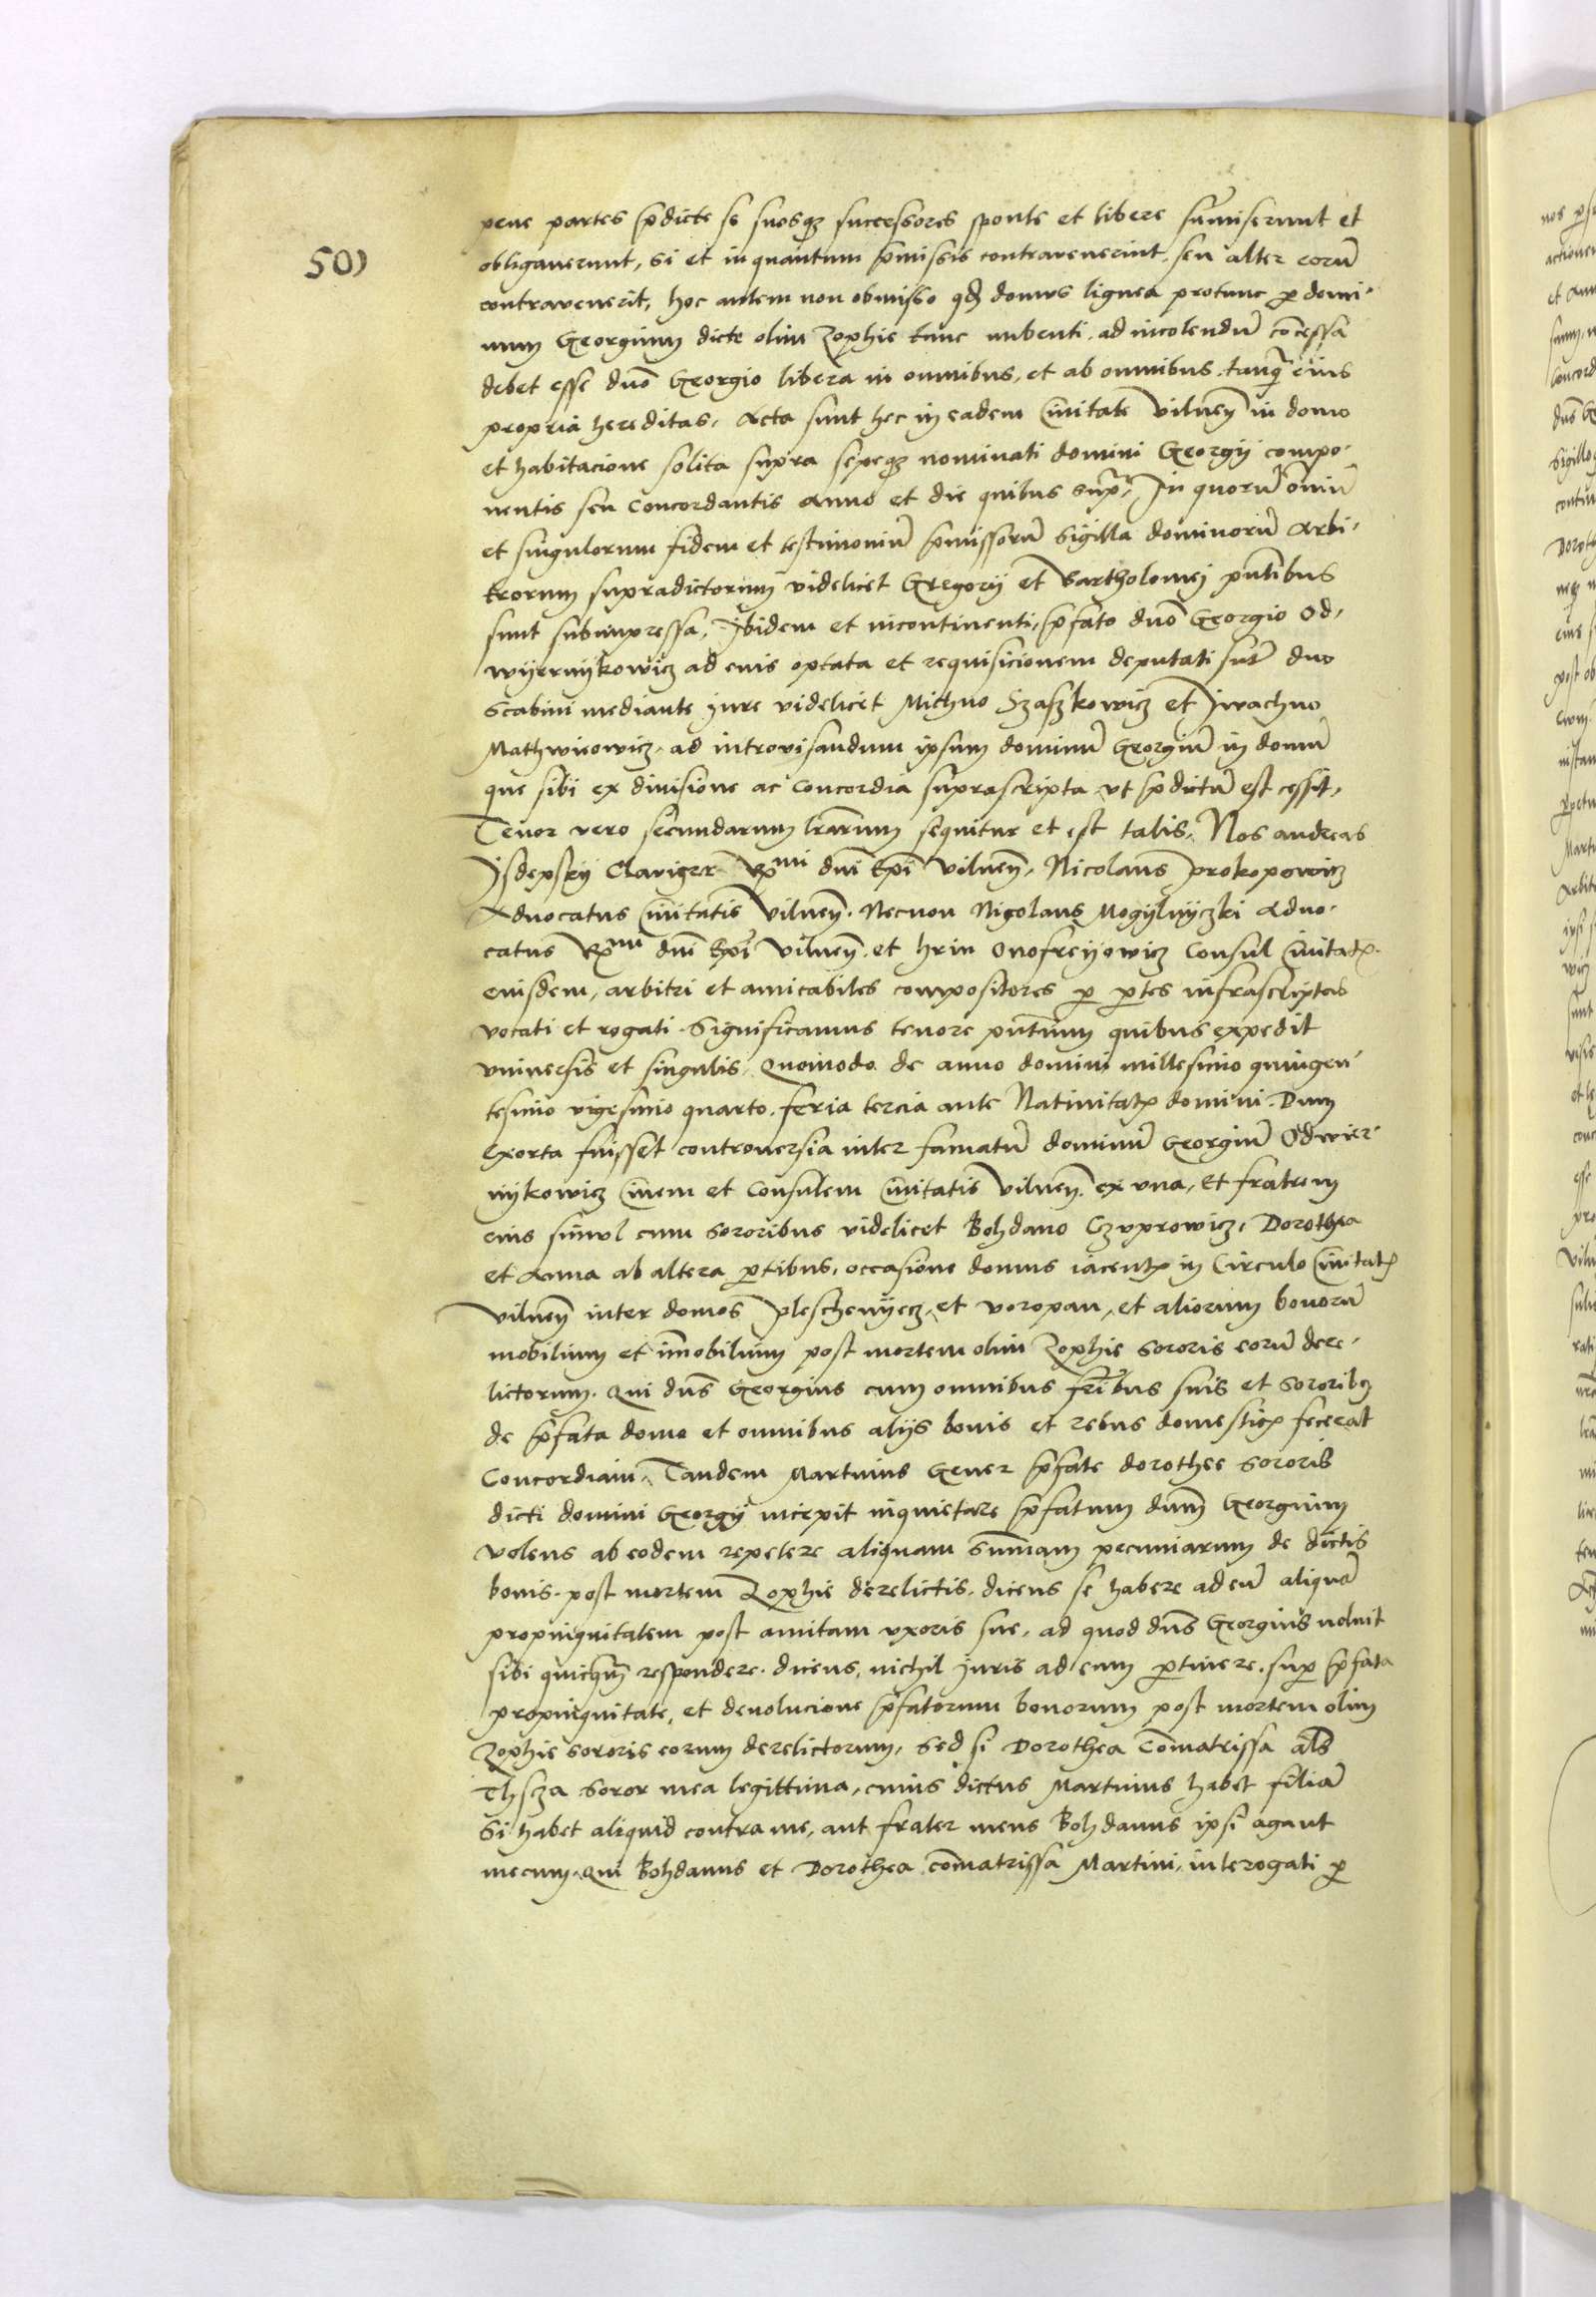 50)
pene partes p̄dicte se suosq₃ successores sponte et libere sum̄iserunt et
obligaverunt, si et inquantum p̄missis contravenerint, seu alter eorū
contravenerit, hoc autem non obmisso qd̄ domus lignea protunc p̱ domi-
num Georgium dicte olim Zophie tunc nubenti, ad incolendū cōcessa
debet esse dn̄o Georgio libera in omnibus, et ab omnibus, tanq̄ eius
propria hereditas. Acta sunt hec in eadem Civitate Vilnen̄ in domo
et habitacione solita supra sepeq₃ nominati domini Georgij compo-
nentis seu Concordantis Anno et die quibus supra, In quorū om̄iū
et singulorum fidem et testimoniū p̄missorū Sigilla dominorū Arbi-
trorum supradictorum videlicet Gregorij et Bartholomej pn̄tibus
sunt subimpressa, Ibidem et incontinenti, p̄fato dn̄o Georgio Od-
wyernykowicz ad eius optata et requisicionem deputati sūt duo
Scabini mediante jure videlicet Michno Szaszkowicz et Iwachno
Mathwieowicz, ad introvisandum ipsum dominū Georgiū in domū
que sibi ex divisione ac Concordia suprascripta, vt p̄dictū est cessit,
Tenor vero secundarum lr̄arum sequitur et est talis, Nos andreas
Isdepskij Claviger R̄mi dn̄i Ep̄i Vilnen̄, Nicolaus Prokopowicz
Advocatus Civitatis Vilnen̄. Necnon Nigolaus Mogÿlnÿczki Advo-
catus R̄mi dn̄i Ep̄i Vilnen̄. et hrin Onofreÿowicz Consul Civitatꝭ
eiusdem, arbitri et amicabiles compositores p̱ p̱tes infrascriptas
vocati et rogati. Significamus tenore pn̄tium quibus expedit
vniversis et singulis, Quomodo de anno domini millesimo quingen-
tesimo vigesimo quarto. feria tercia ante Nativitatꝭ domini. Dum
Exorta fuisset controversia inter famatū dominū Georgiū Odwier-
nykowicz Civem et Consulem Civitatis Vilnen̄. ex vna, Et fratrem
eius simul cum Sororibus videlicet Bohdano Czuprowicz, Dorothea
et Anna ab altera p̱tibus, occasione domus iacentꝭ in Circulo Civitatꝭ
Vilnen̄ inter domos Pleschenÿecz, et Voropan, et aliorum bonorū
mobilium et im̄obilium post mortem olim Zophie Sororis eorū dere-
lictorum. Qui dn̄s Georgius cum omnibus fr̄ibus suis et Sororibꝫ
de p̄fata domo et omnibus alijs bonis et rebus domesticꝭ fecerat
Concordiam, Tandem Martinus Gener p̄fate dorothee Sororis
dicti domini Georgij incepit inquietare p̄fatum dn̄m Georgium
Volens ab eodem repetere aliquam Sum̄am pecuniarum de dictis
bonis. post mortem Zophie derelictis, dicens se habere ad eū aliquā
propinquitatem post amitam vxoris sue, ad quod dn̄s Georgius noluit
sibi quicq̄m respondere. dicens, nichil juris ad eum p̱tinere, sup̱ p̄fata
propinquitate, et devolucione p̄fatorum bonorum post mortem olim
Zophie Sororis eorum derelictorum, Sed si Dorothea Com̄atrissa als̄
Thsza Soror mea legittima, cuius dictus Martinus habet filiā
Si habet aliquid contra me, aut frater meus Bohdanus ipsi agant
mecum. Qui Bohdanus et Dorothea com̄atrissa Martini, interogati p̱